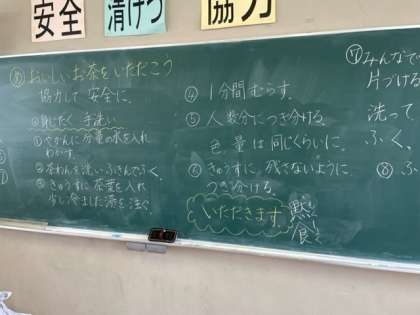 安全
清けつ
協力
めおいしいお茶をいただこう
協力して 安全に。
身じたく 手洗い
① やかんに分量の水を入れ
わかす。
② 茶わんを洗い、ふきんでふく。
③ きゅうすに茶葉を入れ
少し冷ました湯を注ぐ。
④ 1分間むらす。
⑤ 人数分につぎ分ける。
色 量 は同じくらいに。
⑥ きゅうすに残さないように
つぎ分ける。
いただきます。
黙食
⑦ みんなで
片づける
洗って
ふく。
⑧ ふ